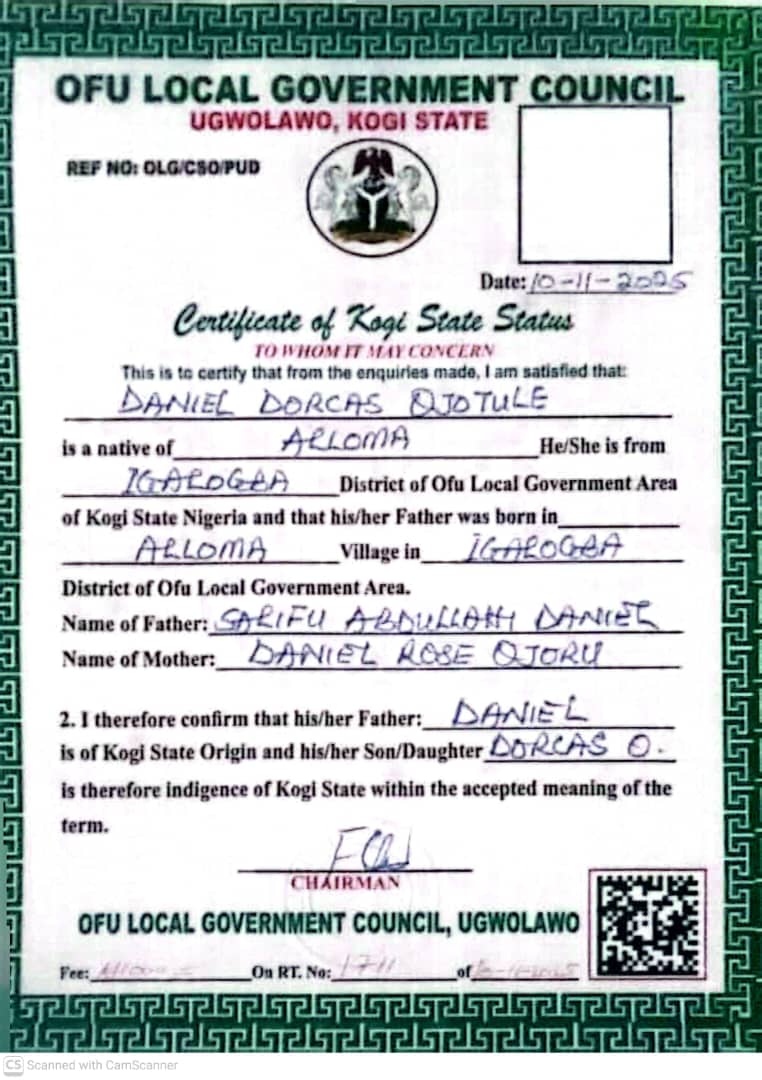 OFU LOCAL GOVERNMENT COUNCIL
UGWOLAWO, KOGI STATE
REF NO: OLG/CSO/PUD
Date: 10-11-2025
Certificate of Kogi State Status
TO WHOM IT MAY CONCERN
This is to certify that from the enquiries made, I am satisfied that:
DANIEL DORCAS OJOTULE
is a native of ALLOMA He/She is from
IGALOGBA District of Ofu Local Government Area
of Kogi State Nigeria and that his/her Father was born in
ALLOMA Village in IGALOGBA
District of Ofu Local Government Area.
Name of Father: SALIFU ABDULLAHI DANIEL
Name of Mother: DANIEL ROSE OJORU
2. I therefore confirm that his/her Father: DANIEL
is of Kogi State Origin and his/her Son/Daughter DORCAS O.
is therefore indigence of Kogi State within the accepted meaning of the
term.
CHAIRMAN
OFU LOCAL GOVERNMENT COUNCIL, UGWOLAWO
Fee: On RT. No: 1711 of 10-11-2025
CS Scanned with CamScanner